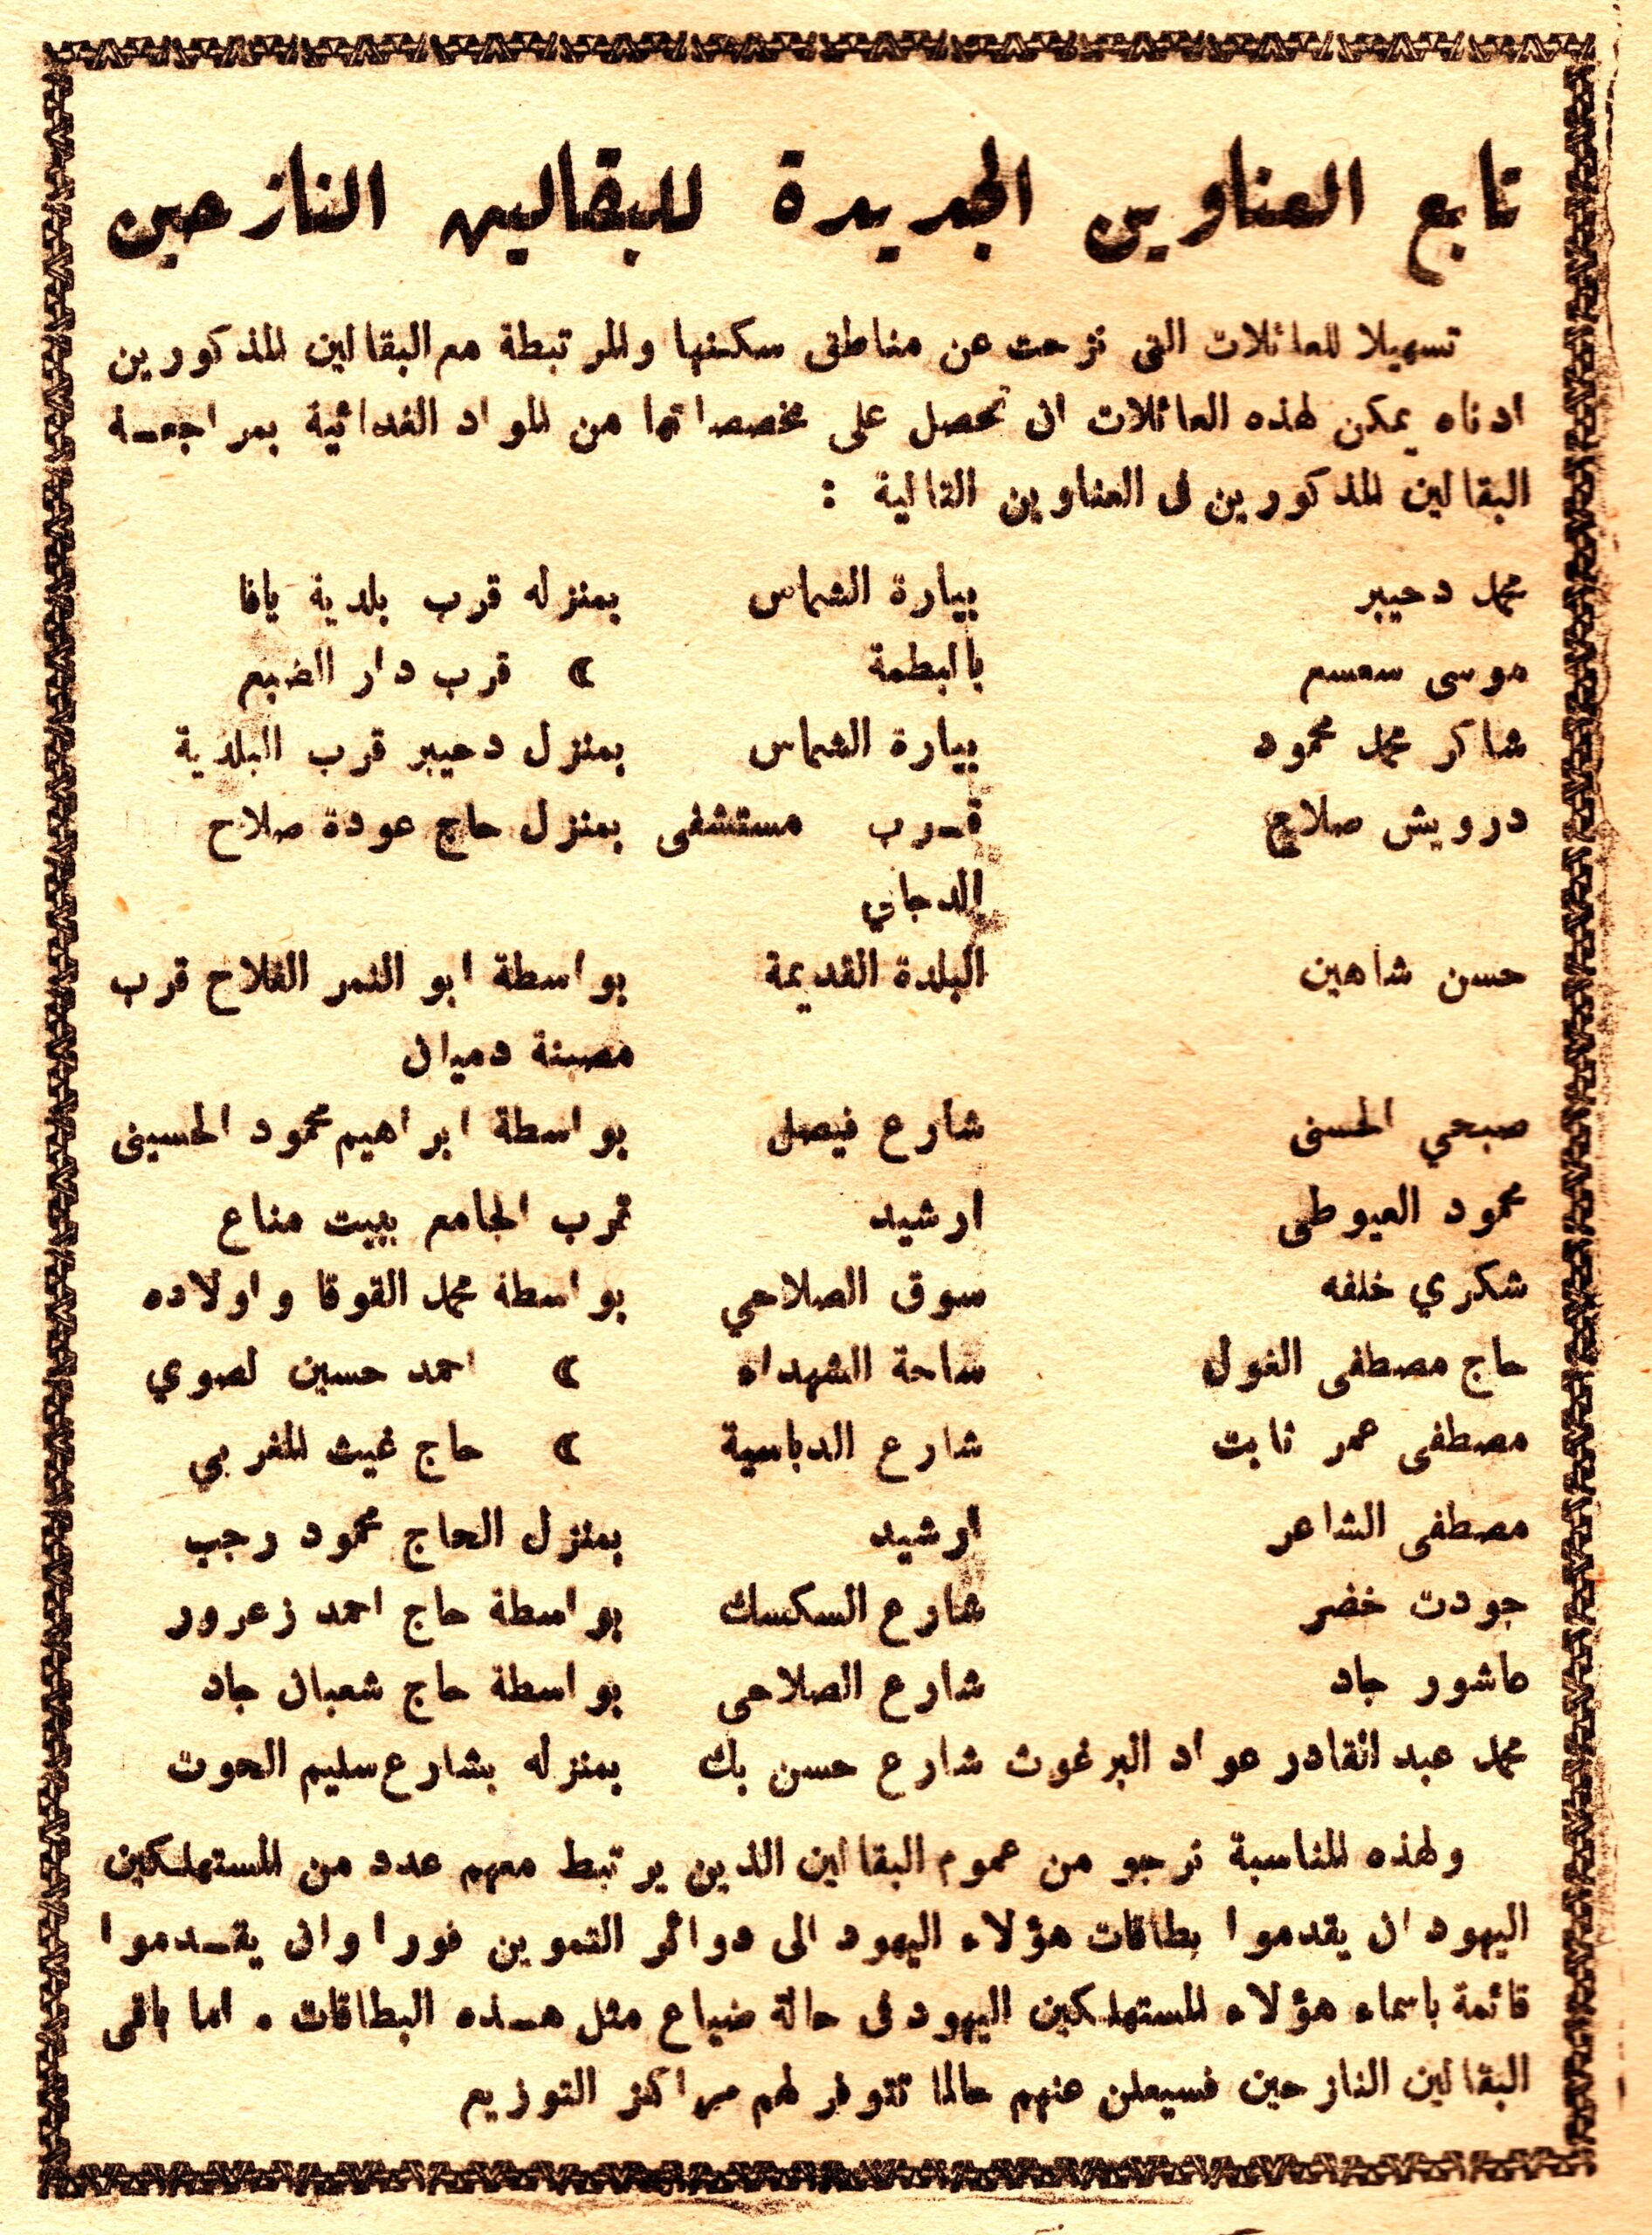 تابع العناوين الجديدة للبقالين النازحين
تسهيلا للعائلات التى نزحت عن مناطق سكنها والمرتبطة مع البقالين المذكورين
ادناه يمكن لهذه العائلات ان تحصل على مخصصاتها من المواد الغذائية بمراجعـة
البقالين المذكورين فى العناوين التالية :
محمد دحيبر بيارة الشماس بمنزله قرب بلدية يافا
موسى سمسم بالبطمة » قرب دار الضبع
شاكر محمد محمود بيارة الشماس بمنزل دحيبر قرب البلدية
درويش صلاح قـرب مستشفى بمنزل حاج عودة صلاح
الدجاني
حسن شاهين البلدة القديمة بواسطة ابو النمر الفلاح قرب
مصبنة دميان
صبحي الحسنى شارع فيصل بواسطة ابراهيم محمود الحسينى
محمود العيوطى ارشيد قرب الجامع ببيت مناع
شكري خلفه سوق الصلاحي بواسطة محمد القوقا واولاده
حاج مصطفى الغول ساحة الشهداء » احمد حسين لصوي
مصطفى عمر ثابت شارع الدباسية » حاج غيث المغربي
مصطفى الشاعر ارشيد بمنزل الحاج محمود رجب
جودت خضر شارع السكسك بواسطة حاج احمد زعرور
عاشور جاد شارع الصلاحى بواسطة حاج شعبان جاد
محمد عبد القادر عواد البرغوث شارع حسن بك بمنزله بشارع سليم الحوت
ولهذه المناسبة نرجو من عموم البقالين الذين يرتبط معهم عدد من المستهلكين
اليهود ان يقدموا بطاقات هؤلاء اليهود الى دوائر التموين فورا وان يقـدموا
قائمة باسماء هؤلاء المستهلكين اليهود فى حالة ضياع مثل هـذه البطاقات . اما باقى
البقالين النازحين فسيعلن عنهم حالما تتوفر لهم مراكز التوزيع